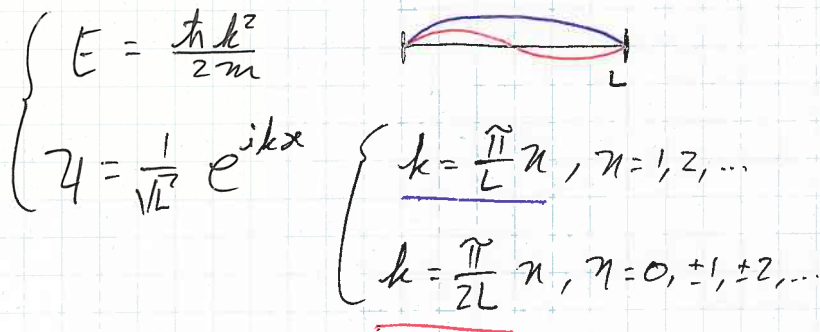 E = ℏk² / 2m
L
ψ = 1/√L e^{ikx}
k = π/L n, n = 1, 2, ...
k = π/2L n, n = 0, ±1, ±2, ...